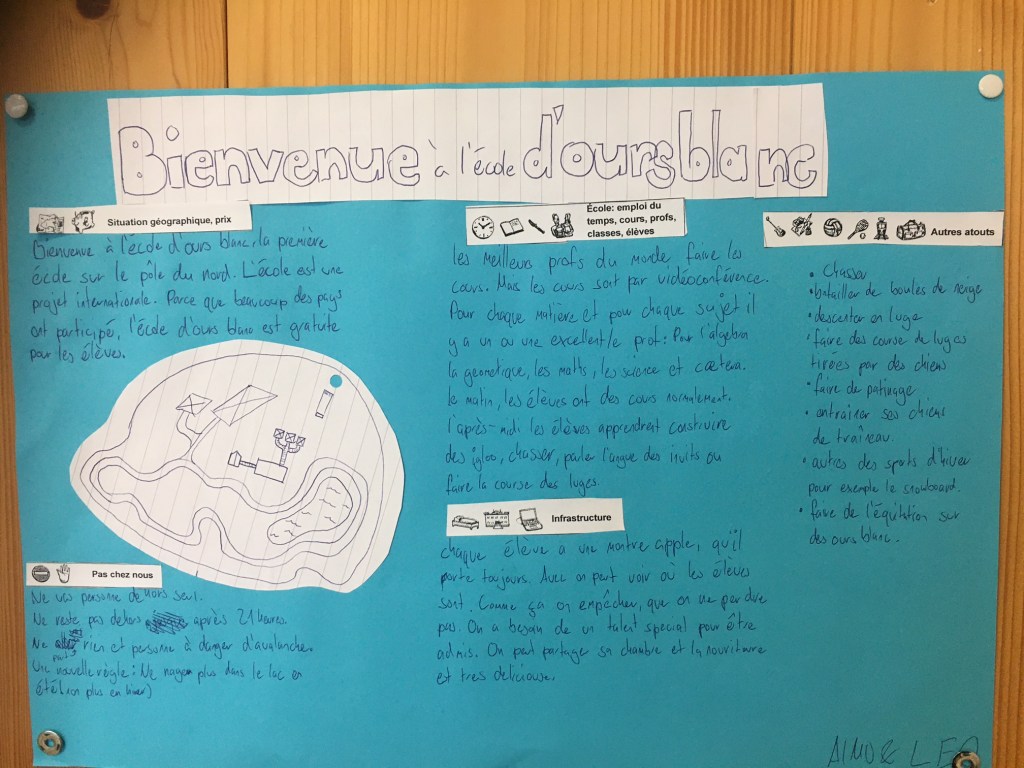 Bienvenue à l'école d'ours blanc
Situation géographique, prix
Bienvenue à l'école d'ours blanc, la première
école sur le pôle du nord. L'école est une
projet internationale. Parce que beaucoup des pays
ont participé, l'école d'ours blanc est gratuite
pour les élèves.
Pas chez nous
Ne vas personne dehors seul.
Ne reste pas dehors après 21 heures.
Ne rien et personne à danger d'avalanche.
Une nouvelle règle: Ne nagem plus dans le lac en
été (non plus en hiver)
École: emploi du
temps, cours, profs,
classes, élèves
les meilleurs profs du monde faire les
cours. Mais les cours sont par vidéoconférence.
Pour chaque matière et pour chaque sujet il
y a un ou une excellent/e prof: Pour l'algebra
la geometique, les maths, les science et cætera.
le matin, les élèves ont des cours normalement.
l'après-midi les élèves apprendrent construire
des igloo, chasser, parler langue des inuits ou
faire la course des luges.
Infrastructure
chaque élève a une montre apple, qu'il
porte toujours. Avec on peut voir où les élèves
sont. Comme ça on empêcher, que on ne perdre
pas. On a besoin de un talent special pour être
admis. On peut partager sa chambre et la nourriture
et tres deliciouse.
Autres atouts
• Chasser
• batailler de boules de neige
• descenter en luge
• faire des course de luges
tirées par des chiens
• faire de patinage
• entraîner ses chiens
de traîneau.
• autres des sports d'hiver
pour exemple le snowboard.
• faire de l'équitation sur
des ours blanc.
AIMO & LEO